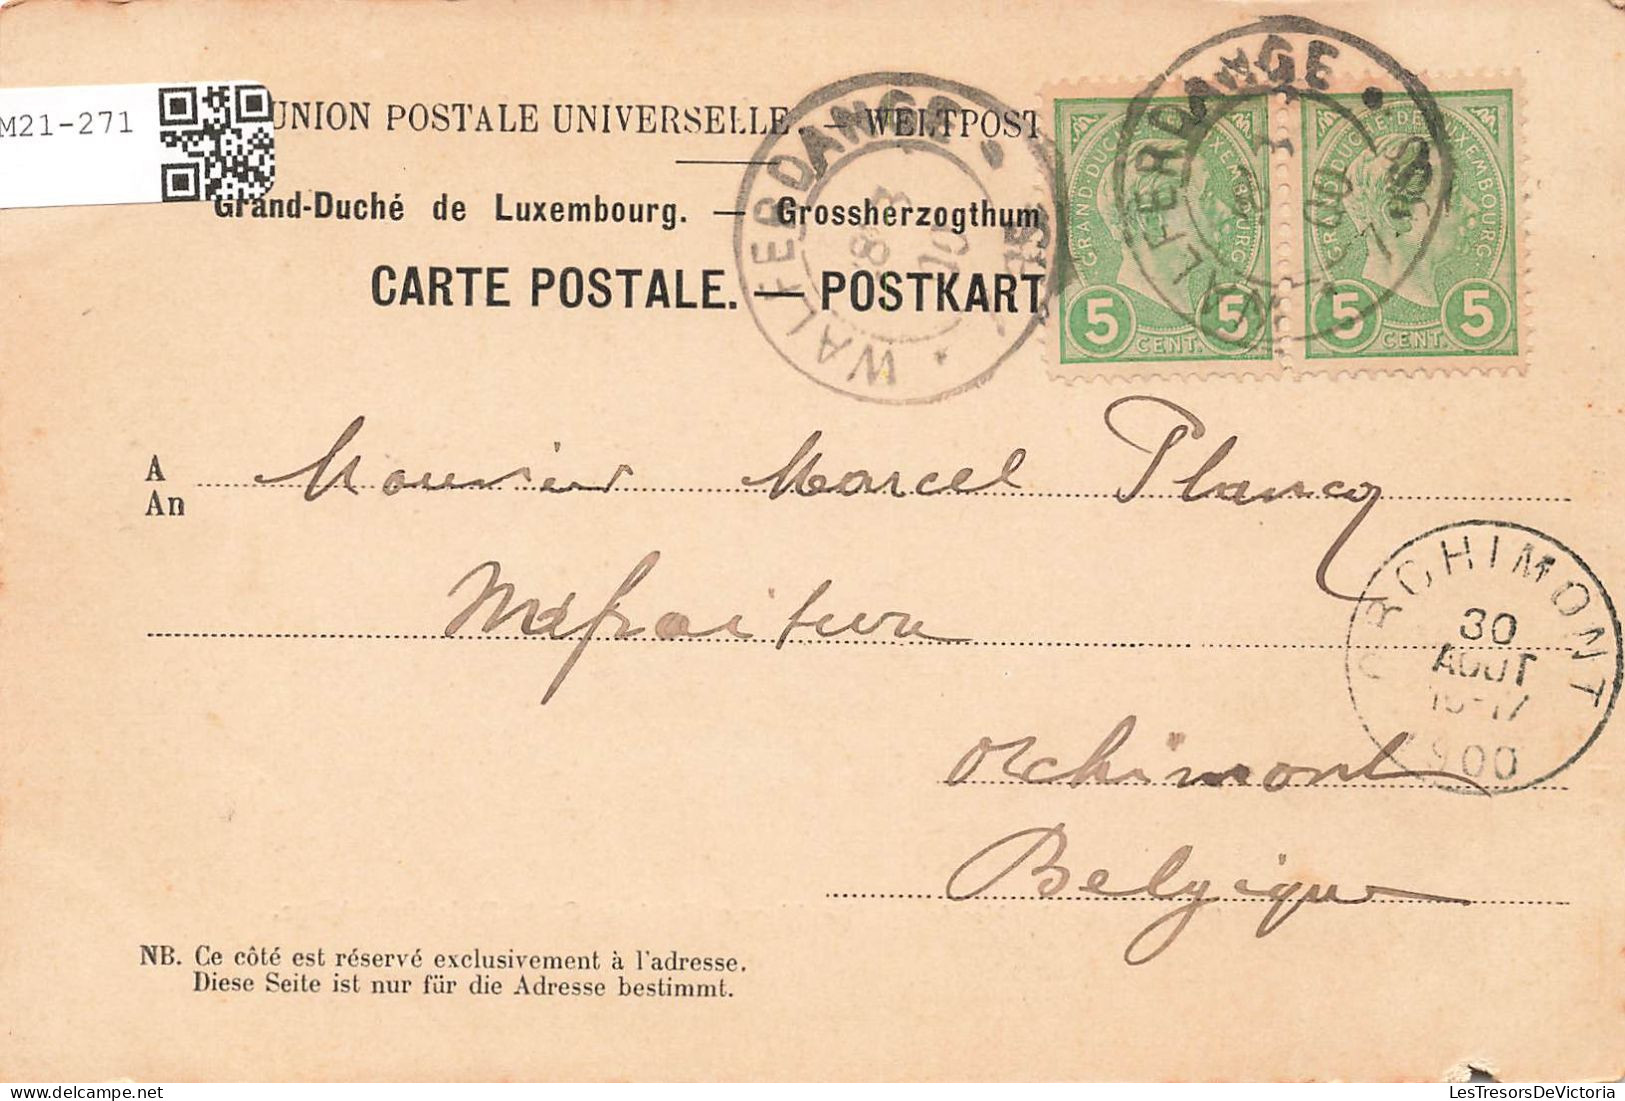 M21-271
UNION POSTALE UNIVERSELLE. — WELTPOST
Grand-Duché de Luxembourg. — Grossherzogthum
CARTE POSTALE. — POSTKART
WALFERDANGE
WALFERDANGE
GRAND-DUCHÉ DE LUXEMBOURG
5 CENT. 5
GRAND-DUCHÉ DE LUXEMBOURG
5 CENT. 5
A Monsieur Marcel Plancq
An
Orchimont
Belgique
ORCHIMONT
30
AOUT
1900
NB. Ce côté est réservé exclusivement à l'adresse.
Diese Seite ist nur für die Adresse bestimmt.
LesTresorsDeVictoria